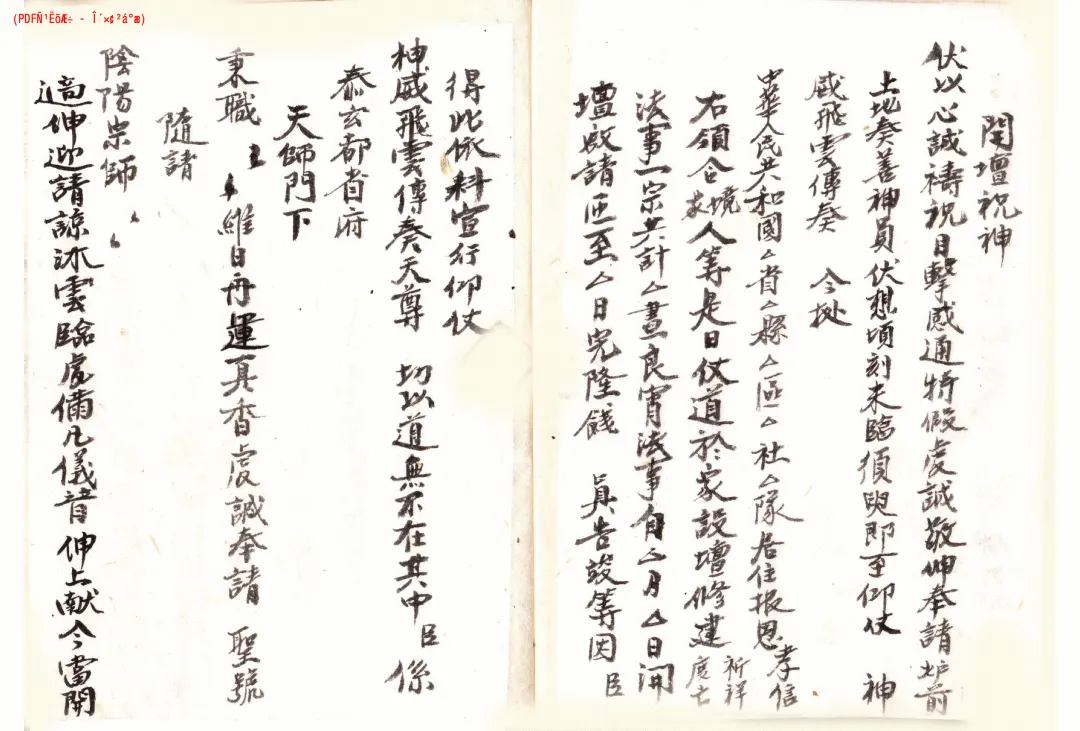 (PDFÑ¹ËõÆ÷ - Î´×¢²á°æ)
開壇祝神
伏以心誠禱祝目擊感通特假虔誠敬伸奉請爐前
土地奏善神員伏想頃刻來臨須臾即至仰仗 神
威飛雲傳奏 今據
中華人民共和國△省△縣△區△社△隊居住报恩孝信
右領合家境人等是日仗道於家設壇修建祈祥度亡
法事一宗共計△晝良宵法事自△月△日開
壇啟請匝至△日完隆餞 具告發等因 臣
得此依科宣行仰仗
神威飛雲傳奏天尊 切以道無不在其中 臣係
泰玄都省府
天師門下
秉職 維日再運真香虔誠奉請 聖號
隨請
陰陽宗師
適伸迎請諒沐雲臨處備凡儀昔伸上献今當開